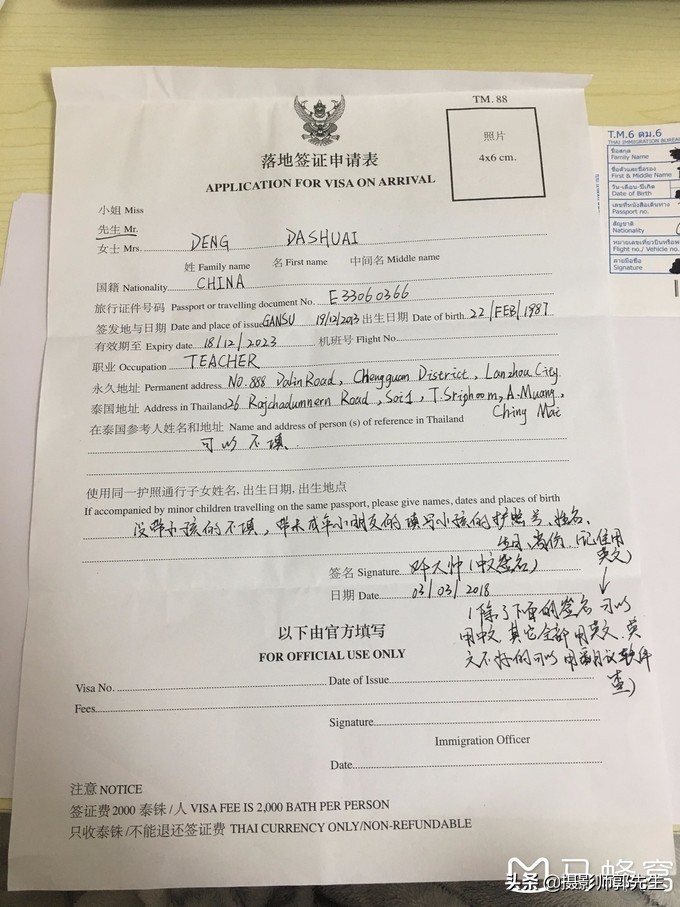 TM. 88
照片
4x6 cm.
落地签证申请表
APPLICATION FOR VISA ON ARRIVAL
小姐 Miss
先生 Mr.
女士 Mrs. DENG DASHUAI
姓 Family name 名 First name 中间名 Middle name
国籍 Nationality CHINA
旅行证件号码 Passport or travelling document No. E33060366
签发地与日期 Date and place of issue GANSU 19/12/2013 出生日期 Date of birth 22/FEB/1987
有效期至 Expiry date 18/12/2023 机班号 Flight No.
职业 Occupation TEACHER
永久地址 Permanent address NO.888 Dalin Road, Chengguan District, Lanzhou City
泰国地址 Address in Thailand 26 Rajchadumnern Road, Soi1, T.Sriphoom, A.Muang,
Ching Mai
在泰国参考人姓名和地址 Name and address of person (s) of reference in Thailand
可以不填
使用同一护照通行子女姓名, 出生日期, 出生地点
If accompanied by minor children travelling on the same passport, please give names, dates and places of birth
没带小孩的不填，带未成年小朋友的填写小孩的护照号、姓名、
英文)
签名 Signature 邓大帅(中文签名)
日期 Date 03/03/2018
(除了下面的签名可以
用中文，其它全部用英文，英
文不好的可以用翻译软件
查)
以下由官方填写
FOR OFFICIAL USE ONLY
Visa No. Date of Issue
Fees
Signature
Immigration Officer
Date
注意 NOTICE
签证费2000 泰铢 /人 VISA FEE IS 2,000 BATH PER PERSON
只收泰铢 /不能退还签证费 THAI CURRENCY ONLY/NON-REFUNDABLE
T.M.6 ตม.6
THAI IMMIGRATION BUREAU
ชื่อสกุล
Family Name
ชื่อตัวและชื่อรอง
First & Middle Name
วัน-เดือน-ปีเกิด
Date of Birth
เลขที่หนังสือเดินทาง
Passport no.
สัญชาติ
Nationality
หมายเลขเที่ยวบินหรือพาหนะ
Flight no./ Vehicle no.
ลายมือชื่อ
Signature
马蜂窝
头条 @摄影师郭先生